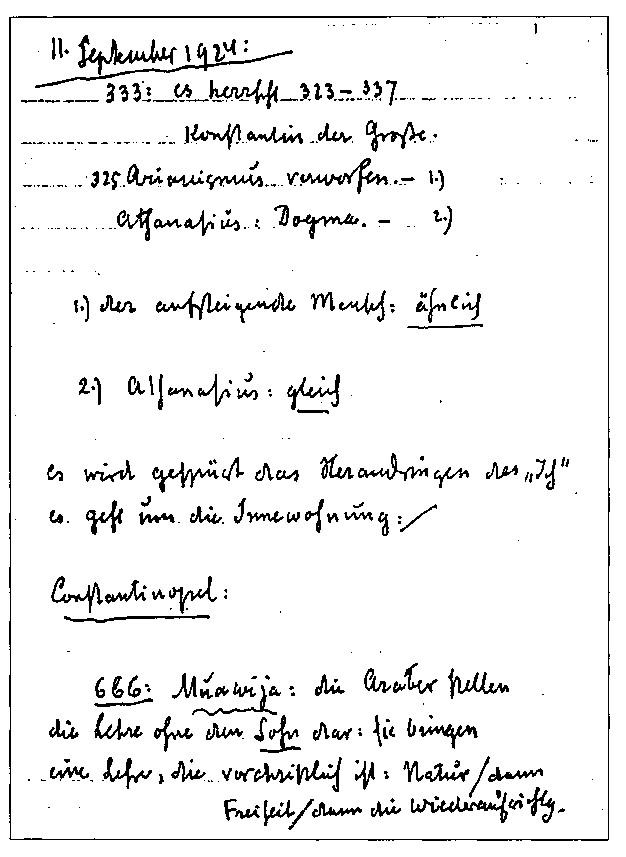 11. September 1924:
333: es herrscht 323 – 337
Konstantin der Große.
325 Arianismus verworfen. – 1.)
Athanasius: Dogma. – 2.)
1.) der aufsteigende Mensch: ähnlich
2.) Athanasius: gleich
es wird gespürt das Herandringen des „Ich"
es geht um die Innewohnung:/
Constantinopel:
666: Muawija: die Araber stellen
die Lehre ohne den Sohn dar: sie bringen
eine Lehre, die vorchristlich ist: Natur/dann
Freiheit/dann die Wiederaufrichtg.